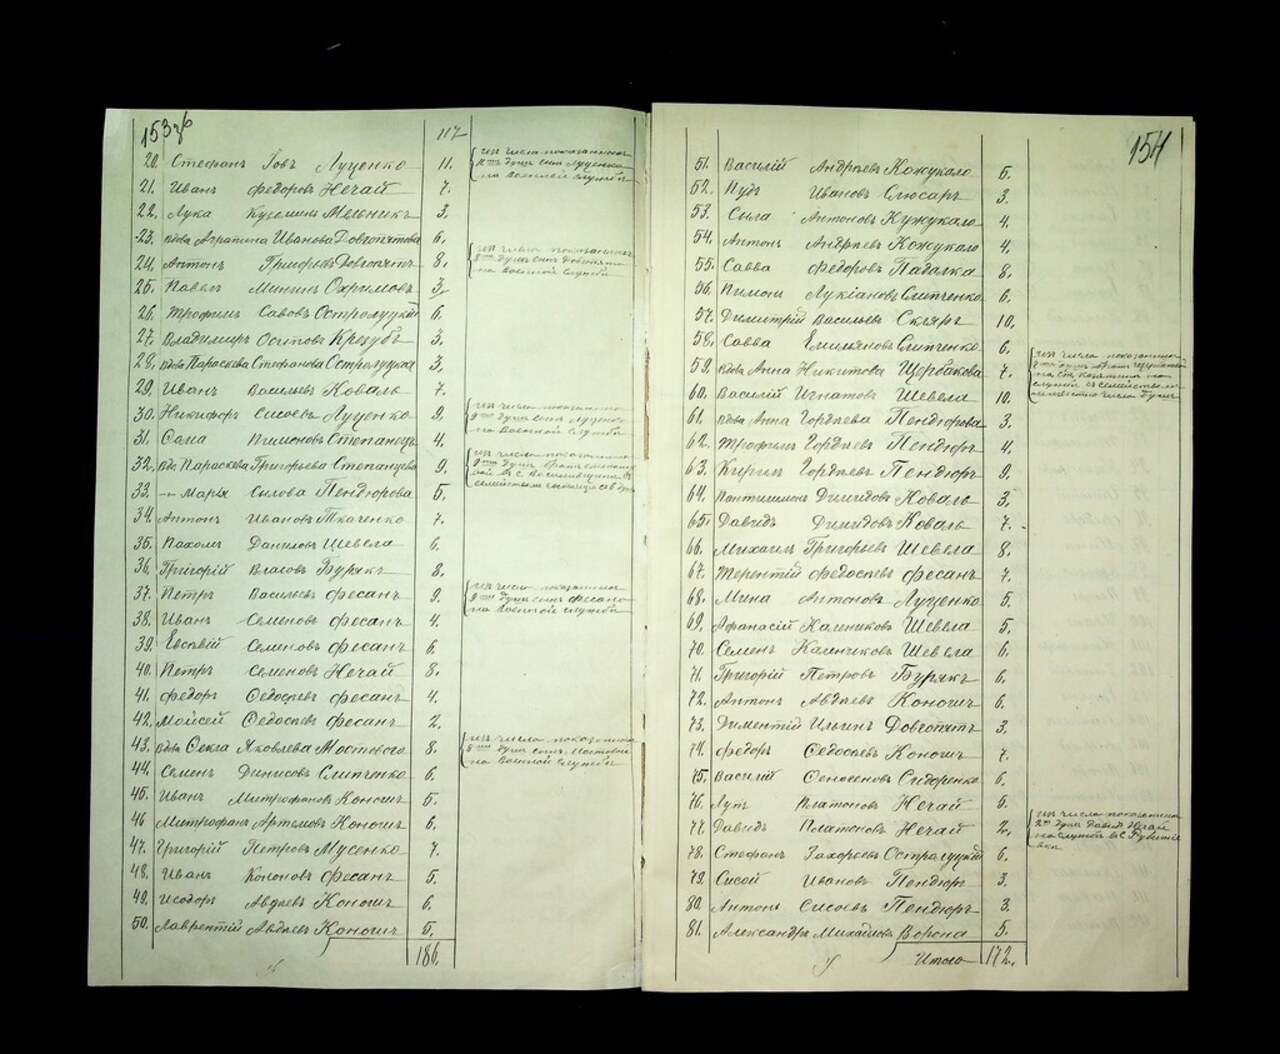 153 об
117
20. Стефанъ Іовъ Луценко 11. изъ числа показанныхъ
11ти душъ сынъ Луценко
на военной службѣ
21. Иванъ Федоровъ Нечай 7.
22. Лука Кузьминъ Мельникъ 3.
23. вдова Агрипина Иванова Довгопятова 6.
24. Антонъ Довгопятъ 8. изъ числа показанныхъ
8ми душъ сынъ Довгопята
на военной службѣ
25. Павелъ Мининъ Охримовъ 3.
26. Трофимъ Савовъ Остролуцкій 6.
27. Владимиръ Осиповъ Крезубъ 3.
28. вдова Параскева Стефанова Остролуцкая 3.
29. Иванъ Васильевъ Коваль 7.
30. Никифоръ Сисоевъ Луценко 9. изъ числа показанныхъ
9ти душъ сынъ Луценко
на военной службѣ
31. Сама Пимоновъ Степанецъ 4.
32. вд. Параскева Григорьева Степанцева 9. изъ числа показанныхъ
9ти душъ
въ с. Васильевцахъ съ
семействомъ
33. Марья Силова Пендюрова 5.
34. Антонъ Ивановъ Ткаченко 7.
35. Пахомъ Даниловъ Шевела 6.
36. Григорій Власовъ Бурякъ 8.
37. Петръ Васильевъ Фесанъ 9. изъ числа показанныхъ
9ти душъ сынъ Фесана
на военной службѣ
38. Иванъ Семеновъ Фесанъ 4.
39. Евсѣвій Семеновъ Фесанъ 6.
40. Петръ Семеновъ Нечай 8.
41. Федоръ Федосѣевъ Фесанъ 4.
42. Мойсей Федосѣевъ Фесанъ 2.
43. вдова Секла Яковлева Мостового 8. изъ числа показанныхъ
8ми душъ сынъ Мостовой
на военной службѣ
44. Семенъ Динисовъ Слипченко 6.
45. Иванъ Митрофановъ Коногичъ 5.
46 Митрофанъ Артемовъ Коногичъ 6.
47. Григорій Петровъ Мусенко 7.
48. Иванъ Кононовъ Фесанъ 5.
49. Исодоръ Авдѣевъ Коногичъ 6.
50. Лаврентій Авдѣевъ Коногичъ 5.
186.
154
51. Василій Андрѣевъ Кожукало 5.
52. Пудъ Ивановъ Слюсаръ 3.
53. Сыла Антоновъ Кужукало 4.
54. Антонъ Андрѣевъ Кожукало 4.
55. Савва Федоровъ Падалка 8.
56. Пимонъ Лукіановъ Слипченко 6.
57. Димитрій Васильевъ Скляръ 10.
58. Савва Емильяновъ Слипченко 6.
59. вдова Анна Никитова Щербакова 7. изъ числа показанныхъ
7ми душъ
службѣ съ семействомъ
60. Василій Игнатовъ Шевела 10.
61. вдова Анна Гордѣева Пендюрова 3.
62. Трофимъ Гордѣевъ Пендюръ 4.
63. Кирилъ Гордѣевъ Пендюръ 9.
64. Пантилимонъ Димидовъ Коваль 3.
65. Давидъ Димидовъ Коваль 7.
66. Михаилъ Григорьевъ Шевела 8.
67. Терентій Федосѣевъ Фесанъ 7.
68. Мина Антоновъ Луценко 5.
69. Афанасій Калениковъ Шевела 5.
70. Семенъ Калениковъ Шевела 6.
71. Григорій Петровъ Бурякъ 6.
72. Антонъ Авдѣевъ Коногичъ 6.
73. Диментій Ильинъ Довгопятъ 3.
74. Федоръ Федосѣевъ Коногичъ 7.
75. Василій Сидоренко 6.
76. Лупъ Платоновъ Нечай 6.
77. Давидъ Платоновъ Нечай 2. изъ числа показанныхъ
2хъ душъ Давидъ Нечай
на службѣ въ с.
78. Стефанъ Захарьевъ Остролуцкій 6.
79. Сисой Ивановъ Пендюръ 3.
80. Антонъ Сисоевъ Пендюръ 3.
81. Александръ Михайловъ Ворона 5.
Итого 172.